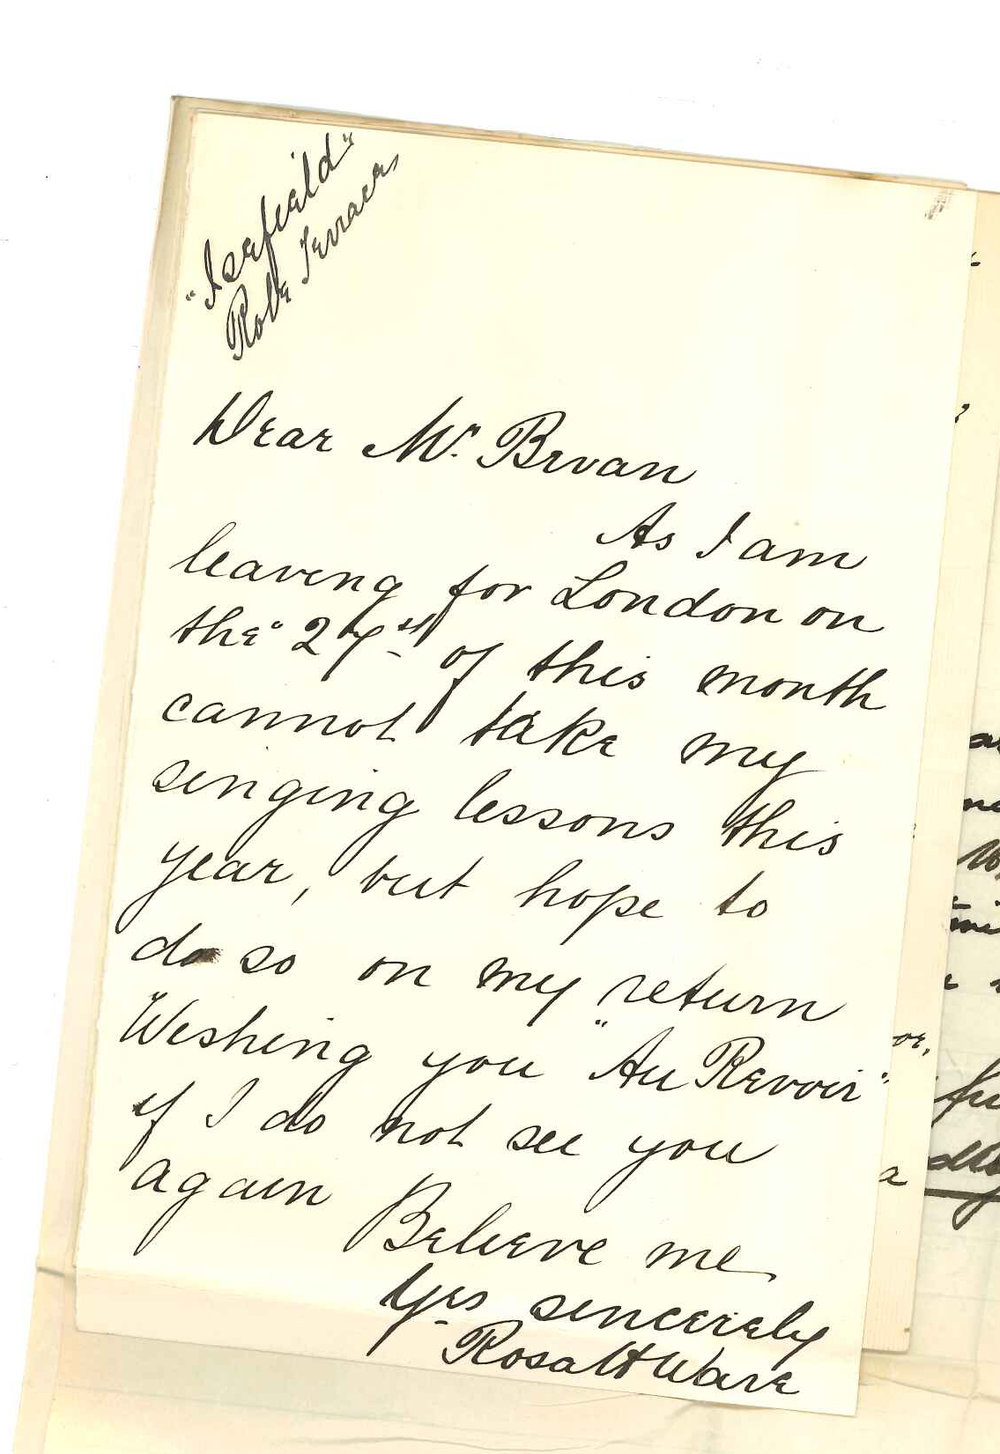 "Icefield"
Robe Terrace,
Dear Mr. Bevan
As I am
leaving for London on
the 27th of this month
cannot take my
singing lessons this
year, but hope to
do so on my return
Wishing you "Au Revoir"
if I do not see you
again Believe me
Yrs sincerely
Rosa H Ware